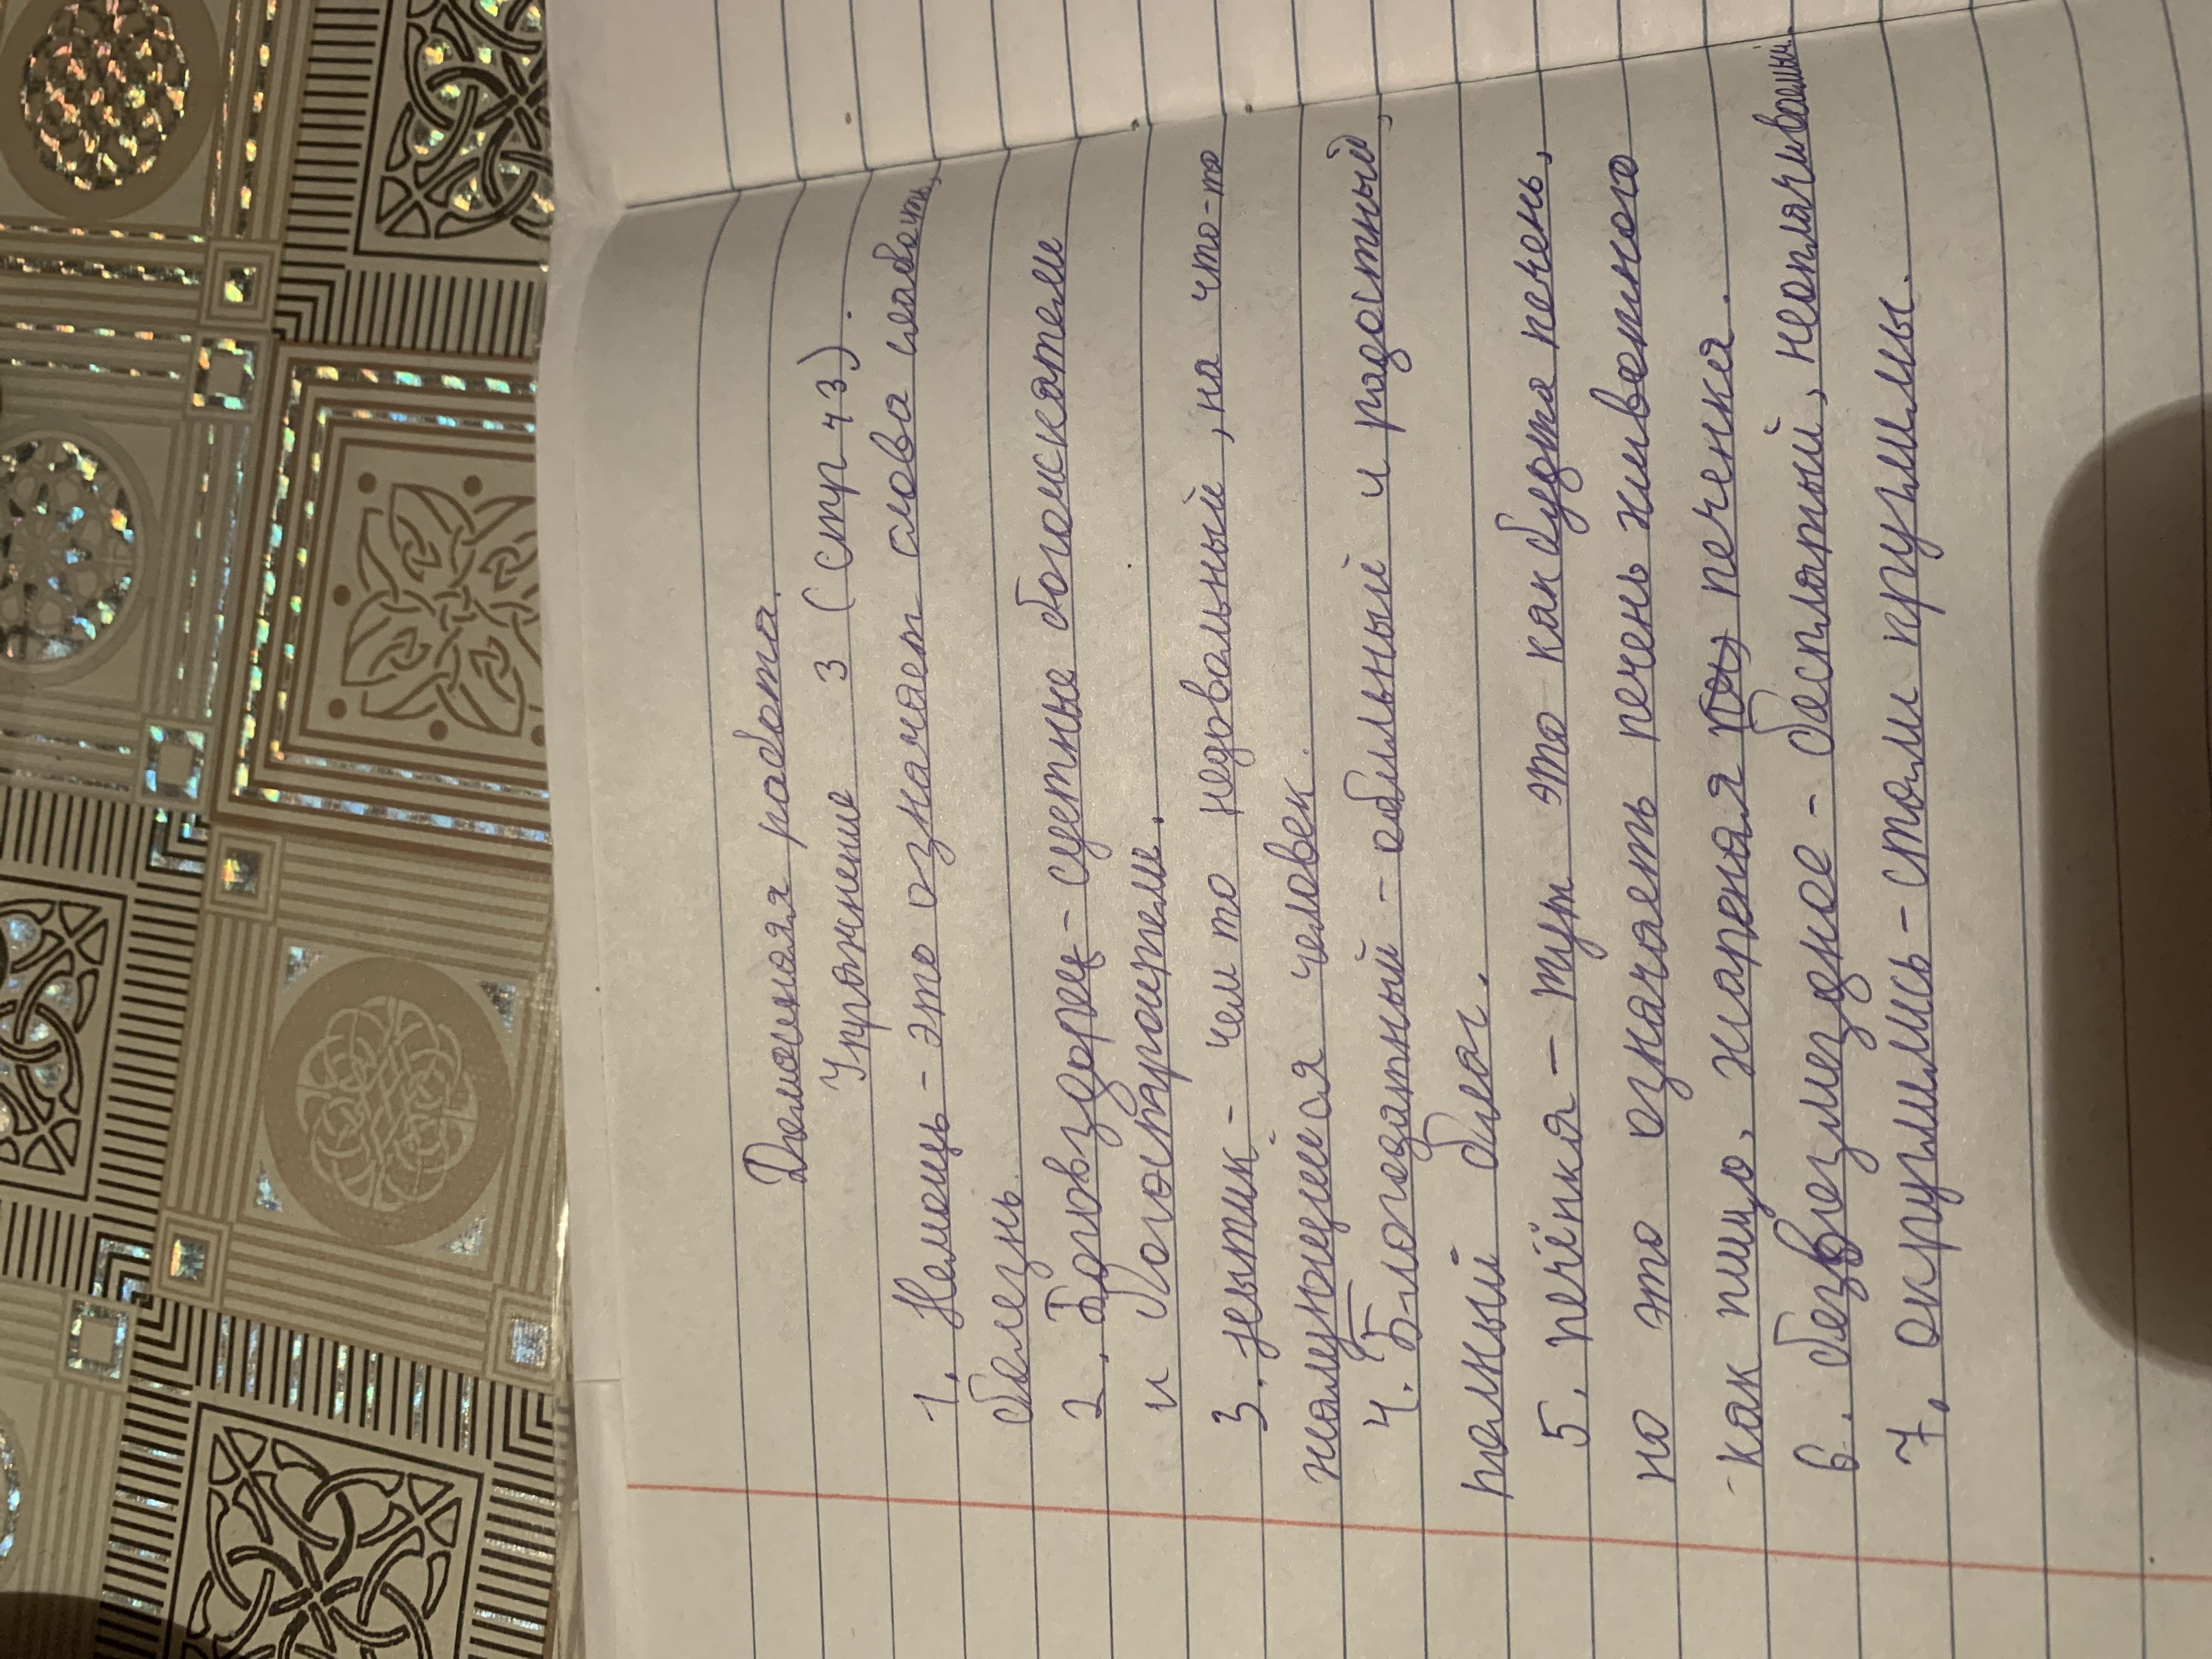 Домошняя работа.
Упражнение 3 (стр 43).
1. Немощь - это означает слова слабость,
болезнь.
2. Боговздорец - суетные богоискатели
и богостроители.
3. нытик - чем то недовольный, на что-то
жалующиеся человек.
4. Благодатный - обильный и радостный,
полный благ.
5. печёнка - тут это как будто печень,
но это означаеть печень животного
как пищо, жареная печенка.
6. безвозмездное - бесплатый, неоплачиваемый.
7. округлились - стали круглы.